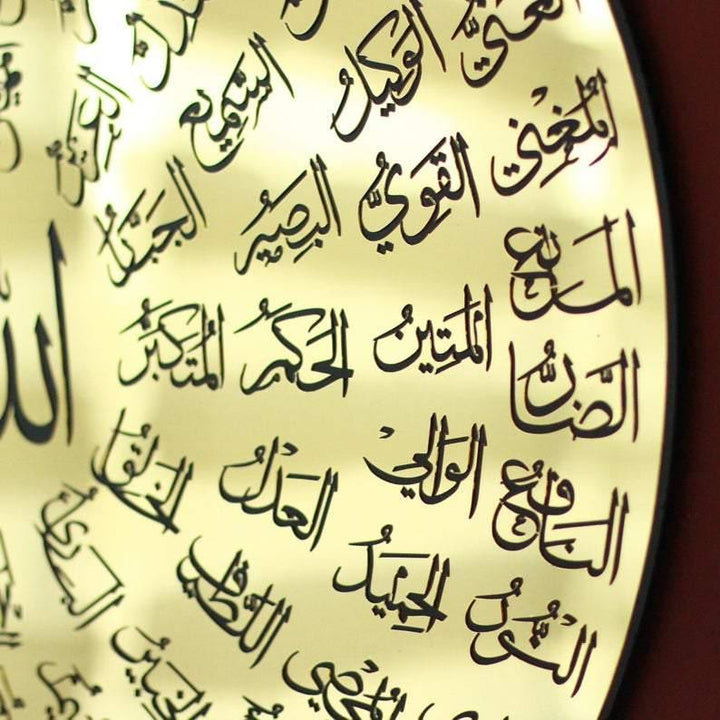 الغني
الوكيل
السميع
المُغْنِي
القَوِيُّ
البَصِيرُ
الجَبَّارُ
المَانِعُ
المَتِينُ
الحَكَمُ
المُتَكَبِّرُ
الله
الضَّارُّ
الوَالِيُ
العَدْلُ
الخَالِقُ
النَافِعُ
الحَمِيدُ
اللَّطِيفُ
البَارِئُ
النُّورُ
المُحْصِي
الخَبِيرُ